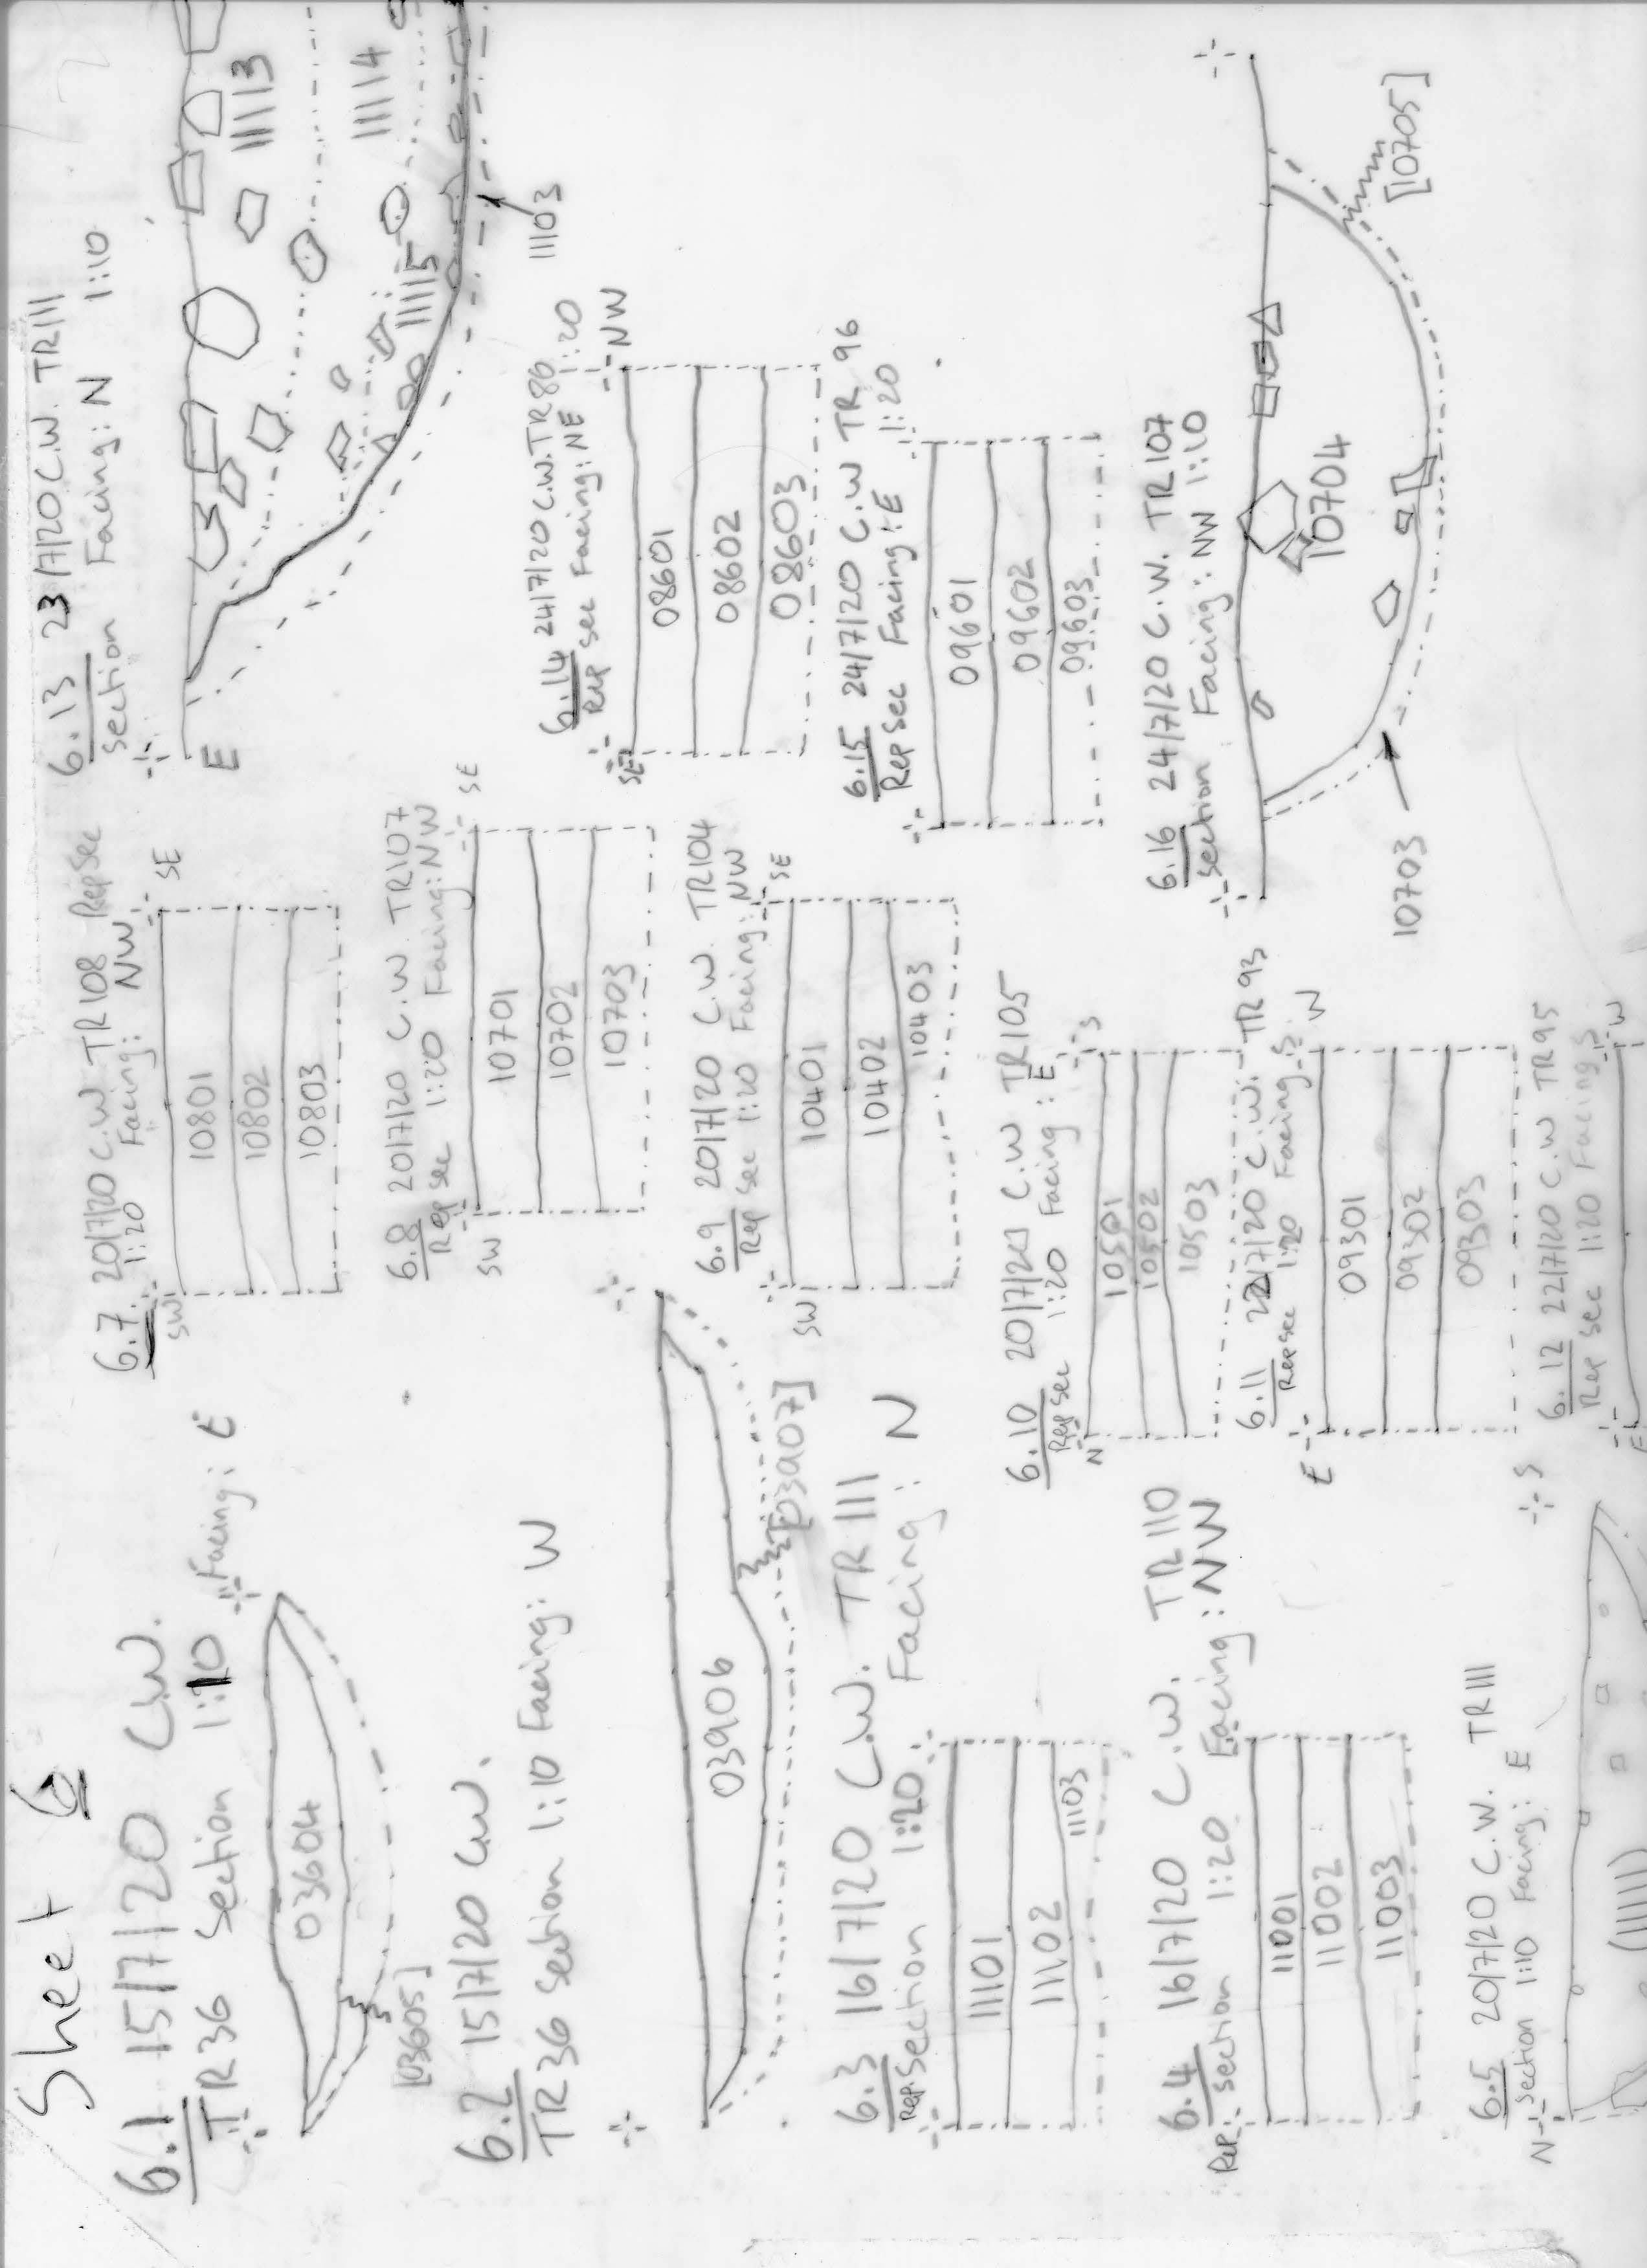 Sheet 6
6.1 15/7/20 C.W.
TR36 Section 1:10 Facing: E
03604
[03605]
6.2 15/7/20 C.W.
TR36 Section 1:10 Facing: W
03906
[03907]
6.3 16/7/20 C.W. TR111
Rep. Section 1:20 Facing: N
11101
11102
11103
6.4 16/7/20 C.W. TR110
Rep. Section 1:20 Facing: NW
11001
11002
11003
6.5 20/7/20 C.W. TR111
N Section 1:10 Facing: E
S
(11111)
6.7 20/7/20 C.W TR108 Rep Sec
1:20 Facing: NW
SW SE
10801
10802
10803
6.8 20/7/20 C.W. TR107
Rep Sec 1:20 Facing: NW
SW SE
10701
10702
10703
6.9 20/7/20 C.W. TR104
Rep Sec 1:20 Facing: NW
SW SE
10401
10402
10403
6.10 20/7/20 C.W TR105
Rep Sec 1:20 Facing: E
N S
10501
10502
10503
6.11 22/7/20 C.W. TR93
Rep Sec 1:20 Facing S
E W
09301
09302
09303
6.12 22/7/20 C.W TR95
Rep Sec 1:20 Facing S
E W
6.13 23/7/20 C.W. TR111
Section Facing: N 1:10
E
11113
11114
11115
11103
6.14 24/7/20 C.W. TR86
Rep Sec Facing: NE 1:20
SE NW
08601
08602
08603
6.15 24/7/20 C.W TR 96
Rep Sec Facing: E 1:20
09601
09602
09603
6.16 24/7/20 C.W. TR107
Section Facing: NW 1:10
10704
10703
[10705]